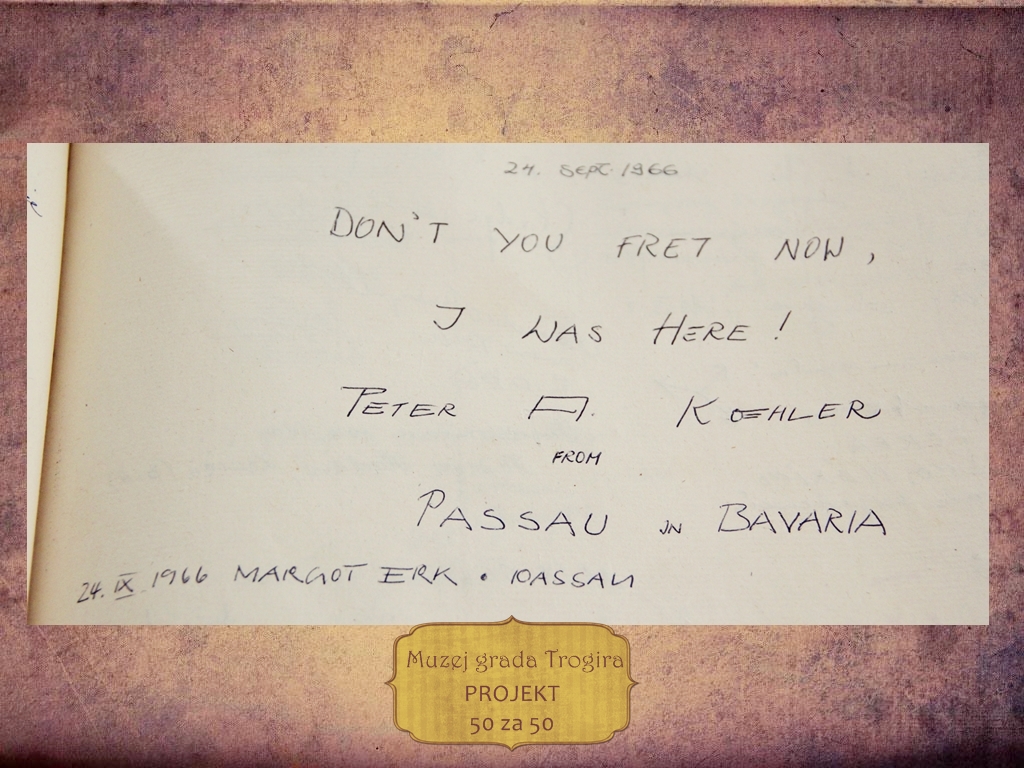 24. Sept. 1966
DON'T YOU FRET NOW,
I WAS HERE!
PETER A. KOEHLER
FROM
PASSAU IN BAVARIA
24. IX 1966 MARGOT ERK • PASSAU
Muzej grada Trogira
PROJEKT
50 za 50